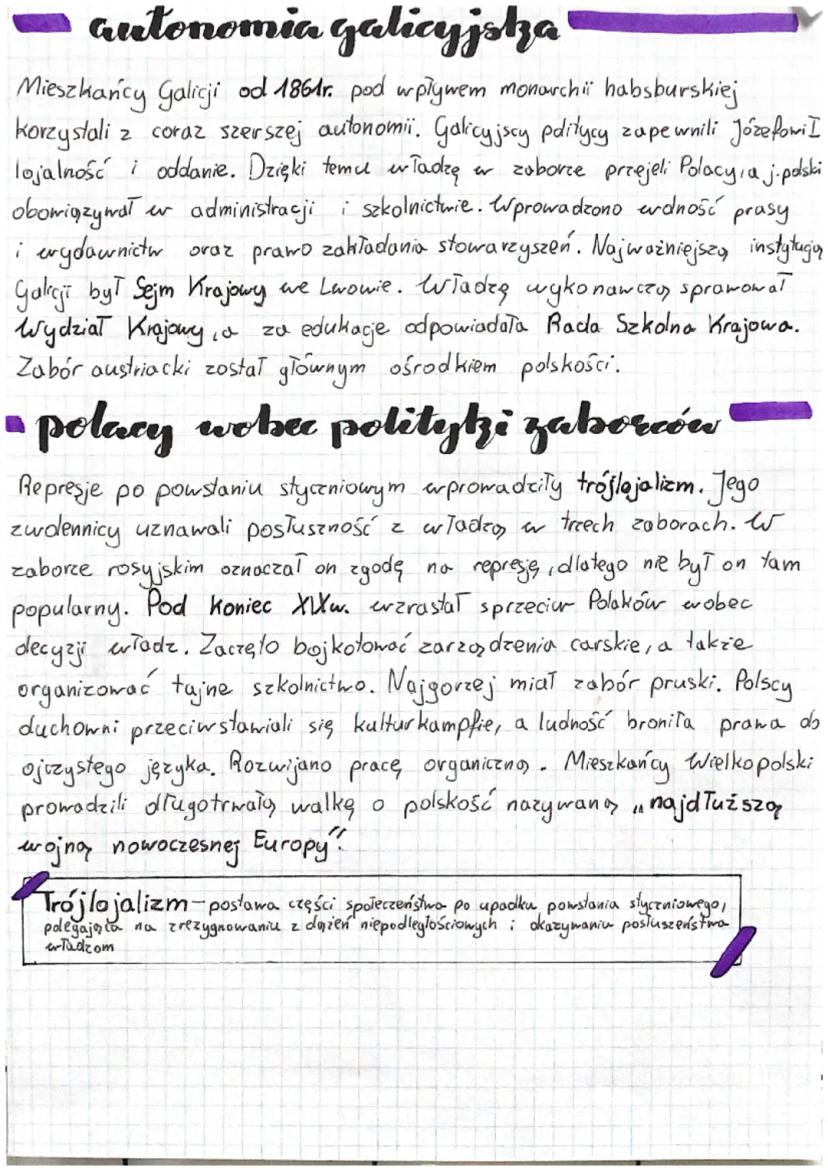 autonomia galicyjska
Mieszkańcy Galicji od 1861r. pod wpływem monarchii habsburskiej
korzystali z coraz szerszej autonomii. Galicyjscy politycy zapewnili Józefowi I
lojalność i oddanie. Dzięki temu władzę w zaborze przejeli Polacy, a j. polski
obowiązywał w administracji i szkolnictwie. Wprowadzono wolność prasy
i wydawnictw oraz prawo zakładania stowarzyszeń. Najważniejszą instytucją
Galicji był Sejm Krajowy we Lwowie. Władzę wykonawczą sprawował
Wydział Krajowy, a za edukacje odpowiadała Rada Szkolna Krajowa.
Zabór austriacki został głównym ośrodkiem polskości.
polacy wobec polityki zaborców
Represje po powstaniu styczniowym wprowadziły trójlojalizm. Jego
zwolennicy uznawali posłuszność z władzą w trzech zaborach. W
zaborze rosyjskim oznaczał on zgodę na represję, dlatego nie był on tam
popularny. Pod koniec XIXw. wzrastał sprzeciw Polaków wobec
decyzji władz. Zaczęto bojkotować zarządzenia carskie, a także
organizować tajne szkolnictwo. Najgorzej miał zabór pruski. Polscy
duchowni przeciwstawiali się kulturkampfie, a ludność broniła prawa do
ojczystego języka. Rozwijano pracę organiczną. Mieszkańcy Wielkopolski
prowadzili długotrwałą walkę o polskość nazywaną „najdłuższą
wojną nowoczesnej Europy".
Trójlojalizm - postawa części społeczeństwa po upadku powstania styczniowego,
polegająca na zrezygnowaniu z dążeń niepodległościowych i okazywaniu posłuszeństwa
władzom